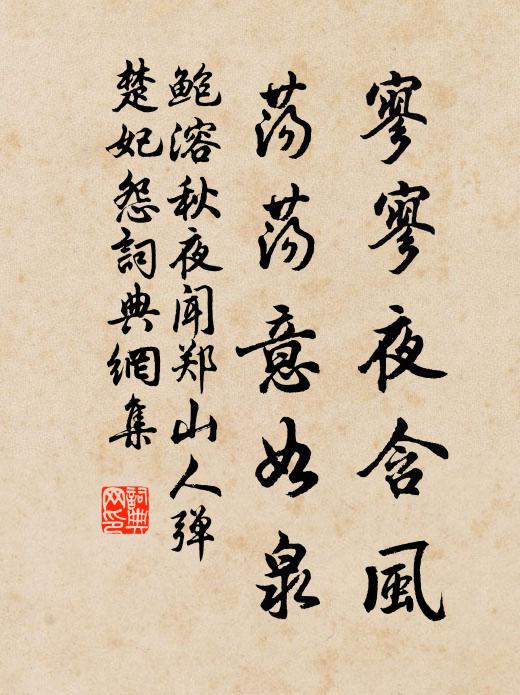 寥寥夜含風
荡荡意如泉
鲍溶秋夜闻郑山人弹
楚妃怨詞典網集
詞典
网印